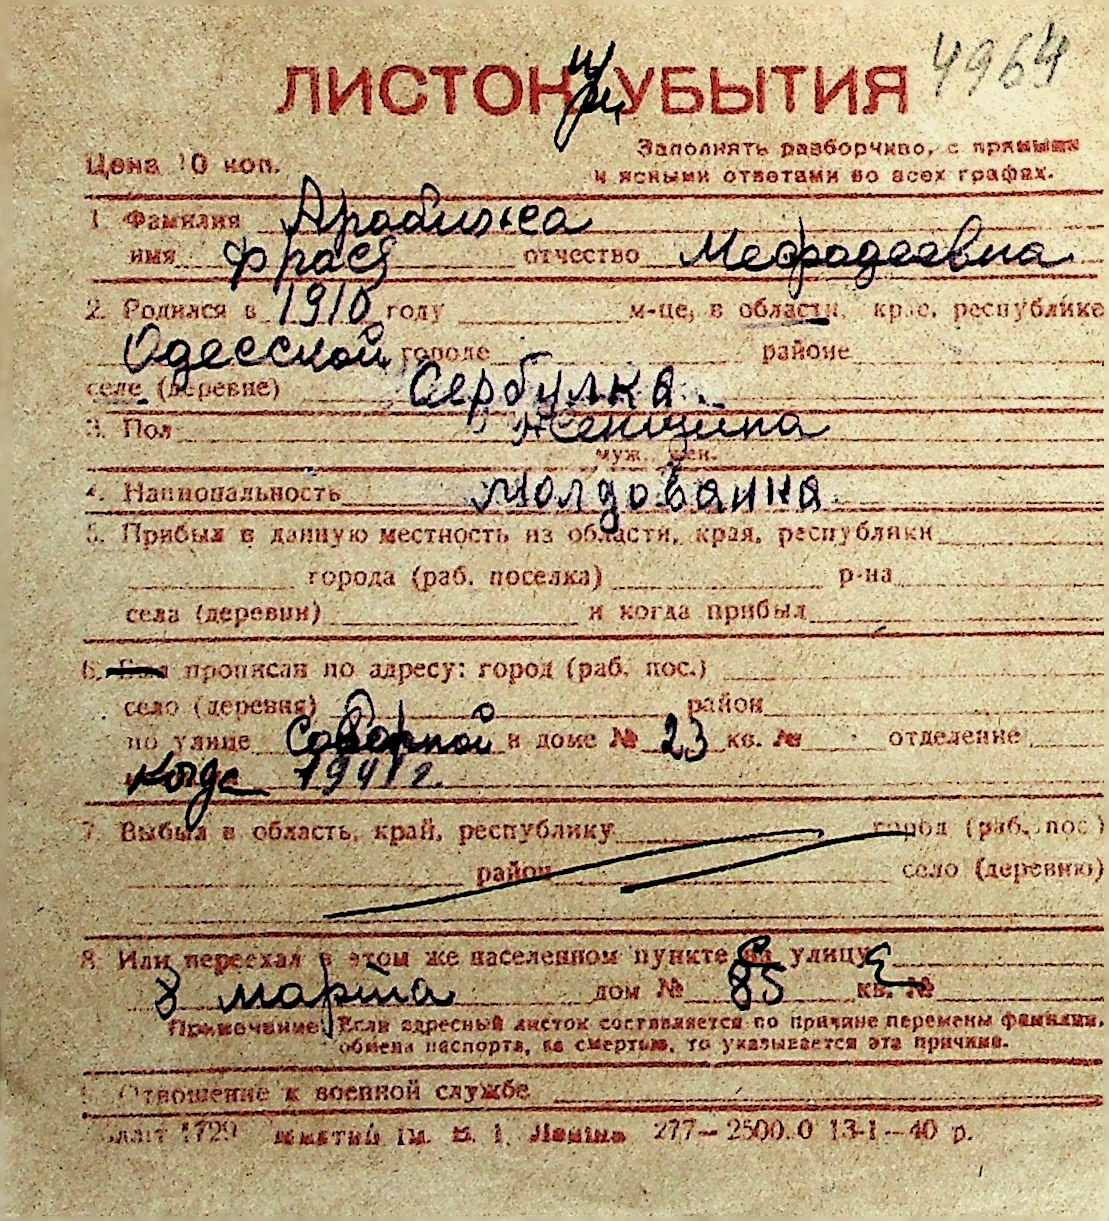 4964
ЛИСТОК УБЫТИЯ
при
Цена 10 коп.
Заполнять разборчиво, с прямыми
и ясными ответами во всех графах.
1. Фамилия Арабиоса
имя Фрася отчество Мефадеевна
2. Родился в 1910 году м-це, в области, крае, республике
Одесской городе районе
селе (деревне) Сербулка
3. Пол женщина
муж. жен.
4. Национальность молдованка
5. Прибыл в данную местность из области, края, республики
города (раб. поселка) р-на
села (деревни) и когда прибыл
6. Был прописан по адресу: город (раб. пос.)
село (деревня) район
по улице Соборной в доме № 23 кв. № отделение
когда 1941 г.
7. Выбыл в область, край, республику город (раб. пос.)
район село (деревню)
8. Или переехал в этом же населенном пункте с улицы
8 марта дом № 85 кв. №
Примечание: Если адресный листок составляется по причине перемены фамилии,
обмена паспорта, за смертью, то указывается эта причина.
Отношение к военной службе
1729 им. В. І. Леніна 277—2500.0 13-1—40 р.